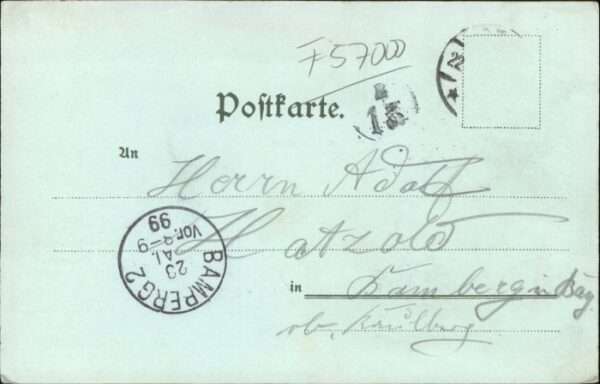 F 57000
Postkarte.
15
22
An
Herrn Adolf
Hatzold
in Bamberg in Bay.
ob. Kaulberg
BAMBERG 2
23
Vor. 8-9
99